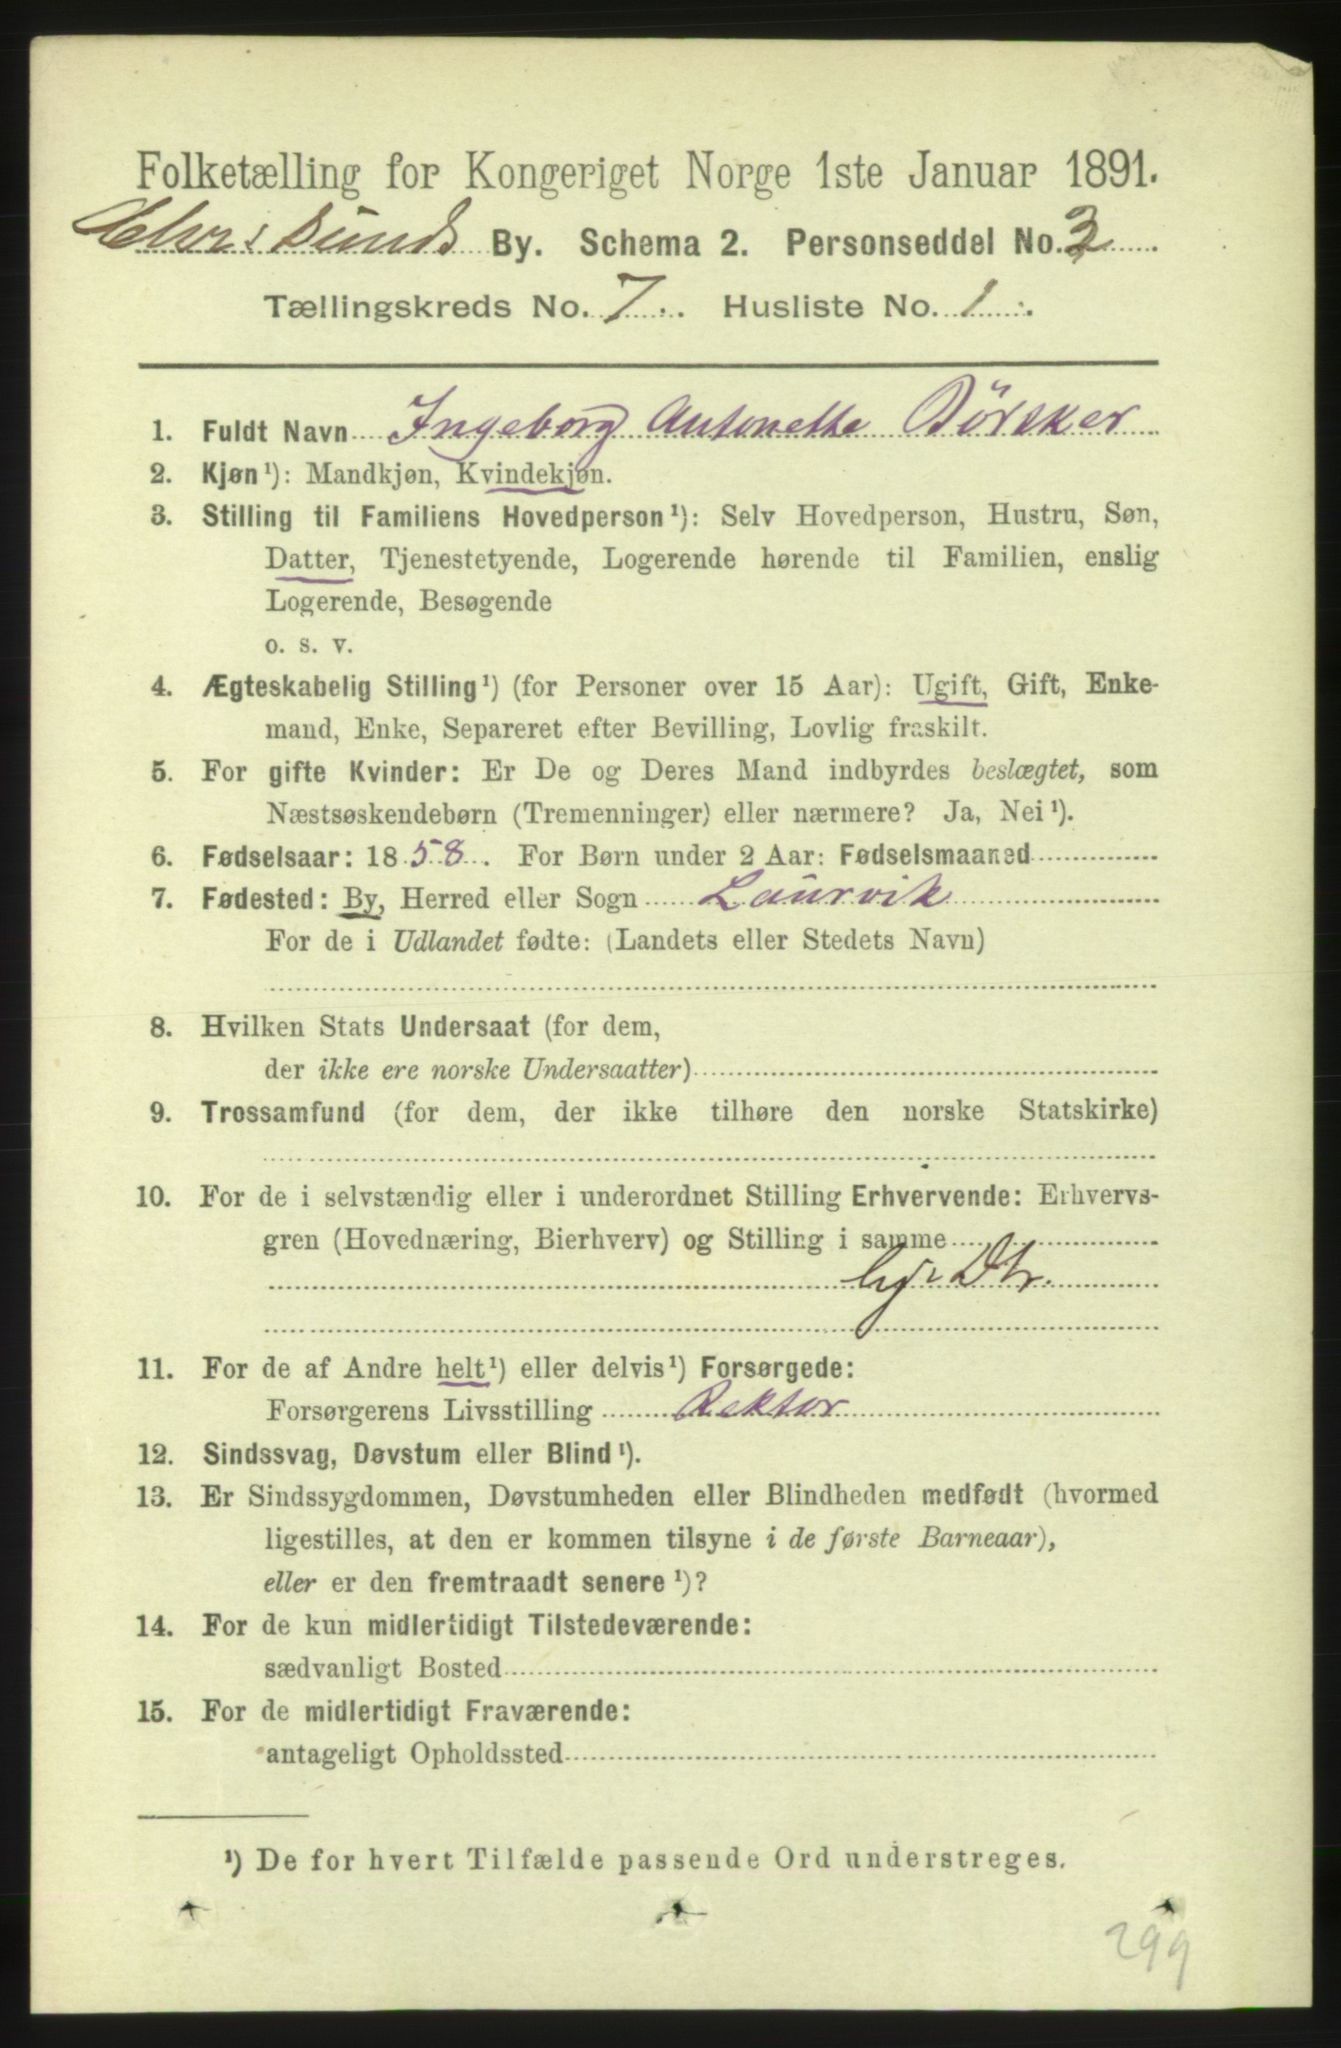 Folketælling for Kongeriget Norge 1ste Januar 1891.
Chr:sunds By. Schema 2. Personseddel No. 3
Tællingskreds No. 7. Husliste No. 1.
1. Fuldt Navn Ingeborg Antonette Börsker
2. Kjøn¹): Mandkjøn, Kvindekjøn.
3. Stilling til Familiens Hovedperson¹): Selv Hovedperson, Hustru, Søn,
Datter, Tjenestetyende, Logerende hørende til Familien, enslig
Logerende, Besøgende
o. s. v.
4. Ægteskabelig Stilling¹) (for Personer over 15 Aar): Ugift, Gift, Enke-
mand, Enke, Separeret efter Bevilling, Lovlig fraskilt.
5. For gifte Kvinder: Er De og Deres Mand indbyrdes beslægtet, som
Næstsøskendebørn (Tremenninger) eller nærmere? Ja, Nei¹).
6. Fødselsaar: 1858. For Børn under 2 Aar: Fødselsmaaned
7. Fødested: By, Herred eller Sogn Laurvik
For de i Udlandet fødte: (Landets eller Stedets Navn)
8. Hvilken Stats Undersaat (for dem,
der ikke ere norske Undersaatter)
9. Trossamfund (for dem, der ikke tilhøre den norske Statskirke)
10. For de i selvstændig eller i underordnet Stilling Erhvervende: Erhvervs-
gren (Hovednæring, Bierhverv) og Stilling i samme
Dtr.
11. For de af Andre helt¹) eller delvis¹) Forsørgede:
Forsørgerens Livsstilling Rektor
12. Sindssvag, Døvstum eller Blind¹).
13. Er Sindssygdommen, Døvstumheden eller Blindheden medfødt (hvormed
ligestilles, at den er kommen tilsyne i de første Barneaar),
eller er den fremtraadt senere¹)?
14. For de kun midlertidigt Tilstedeværende:
sædvanligt Bosted
15. For de midlertidigt Fraværende:
antageligt Opholdssted
¹) De for hvert Tilfælde passende Ord understreges.
299